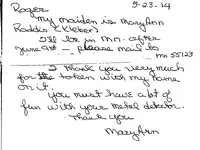 Roger 9-23-14
my maiden is MaryAnn
Raddis (Kleber)
I'll be in Mn. after
June 9th - please mail to
mn 55123
I thank you very much
for the token with my name
on it.
You must have a lot of
fun with your metal detector.
Thank you
MaryAnn